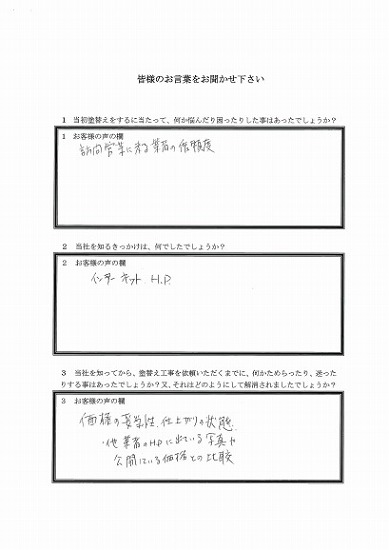 皆様のお言葉をお聞かせ下さい
1 当初塗替えをするに当たって、何か悩んだり困ったりした事はあったでしょうか？
1 お客様の声の欄
訪問営業に来る業者の信頼度
2 当社を知るきっかけは、何でしたでしょうか？
2 お客様の声の欄
インターネット H.P.
3 当社を知ってから、塗替え工事を依頼いただくまでに、何かためらったり、迷った
りする事はあったでしょうか？又、それはどのようにして解消されましたでしょうか？
3 お客様の声の欄
価格の妥当性、仕上がりの状態、
・他業者のH.P.に出ている写真や
公開している価格との比較